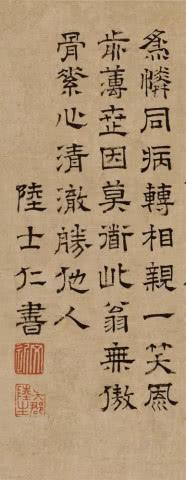 為憐同病轉相親一笑風
歬薄因莫衜此翁無傲
骨心清澈勝他人
陸士仁書